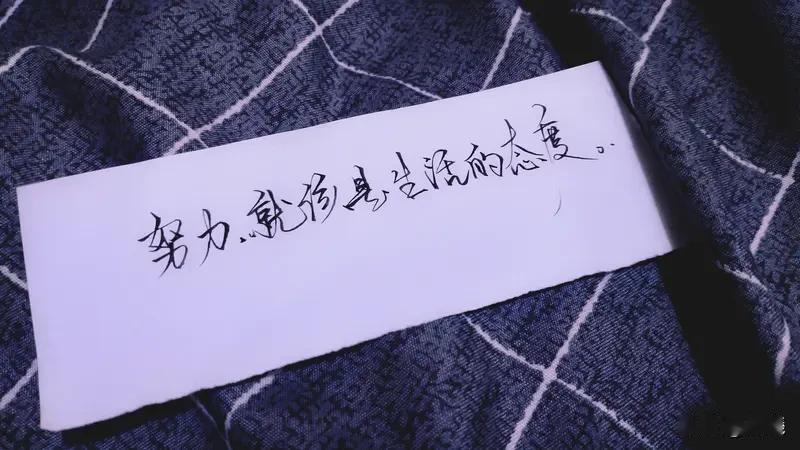 努力、就该是生活的态度。